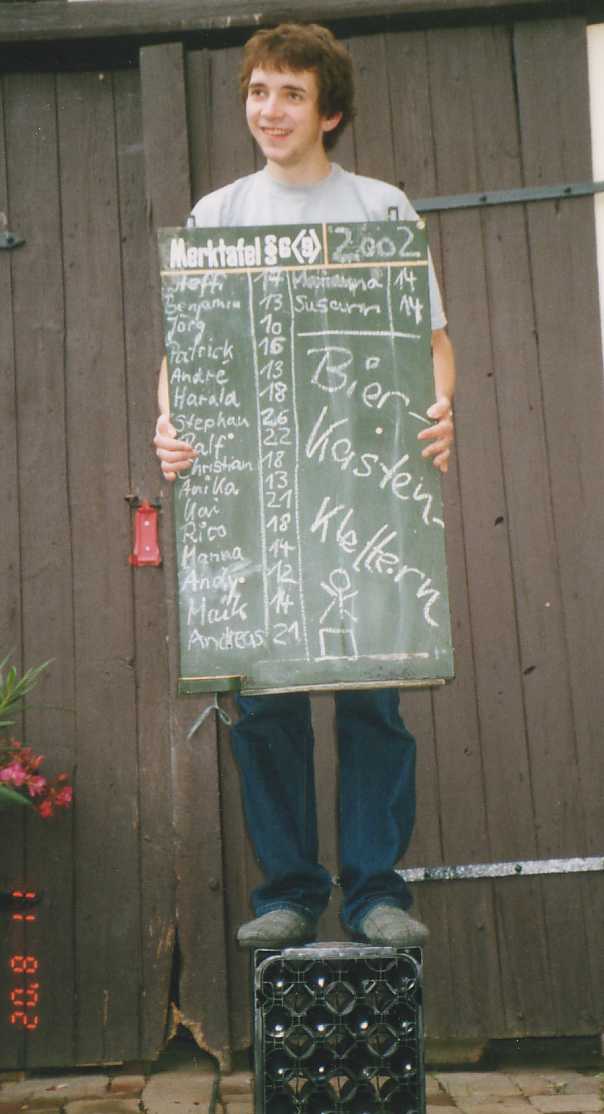 Merktafel §6(9) 2002
Steffi 14 Marianna 14
Benjamin 13 Susann 14
Jörg 10
Patrick 16
André 13
Harald 18
Stephan 26
Ralf 22
Christian 18
Anika 13
Kai 21
Rico 18
Hanna 14
Andy 12
Maik 14
Andreas 21
Bier-
Kästen-
Klettern
20.8 11